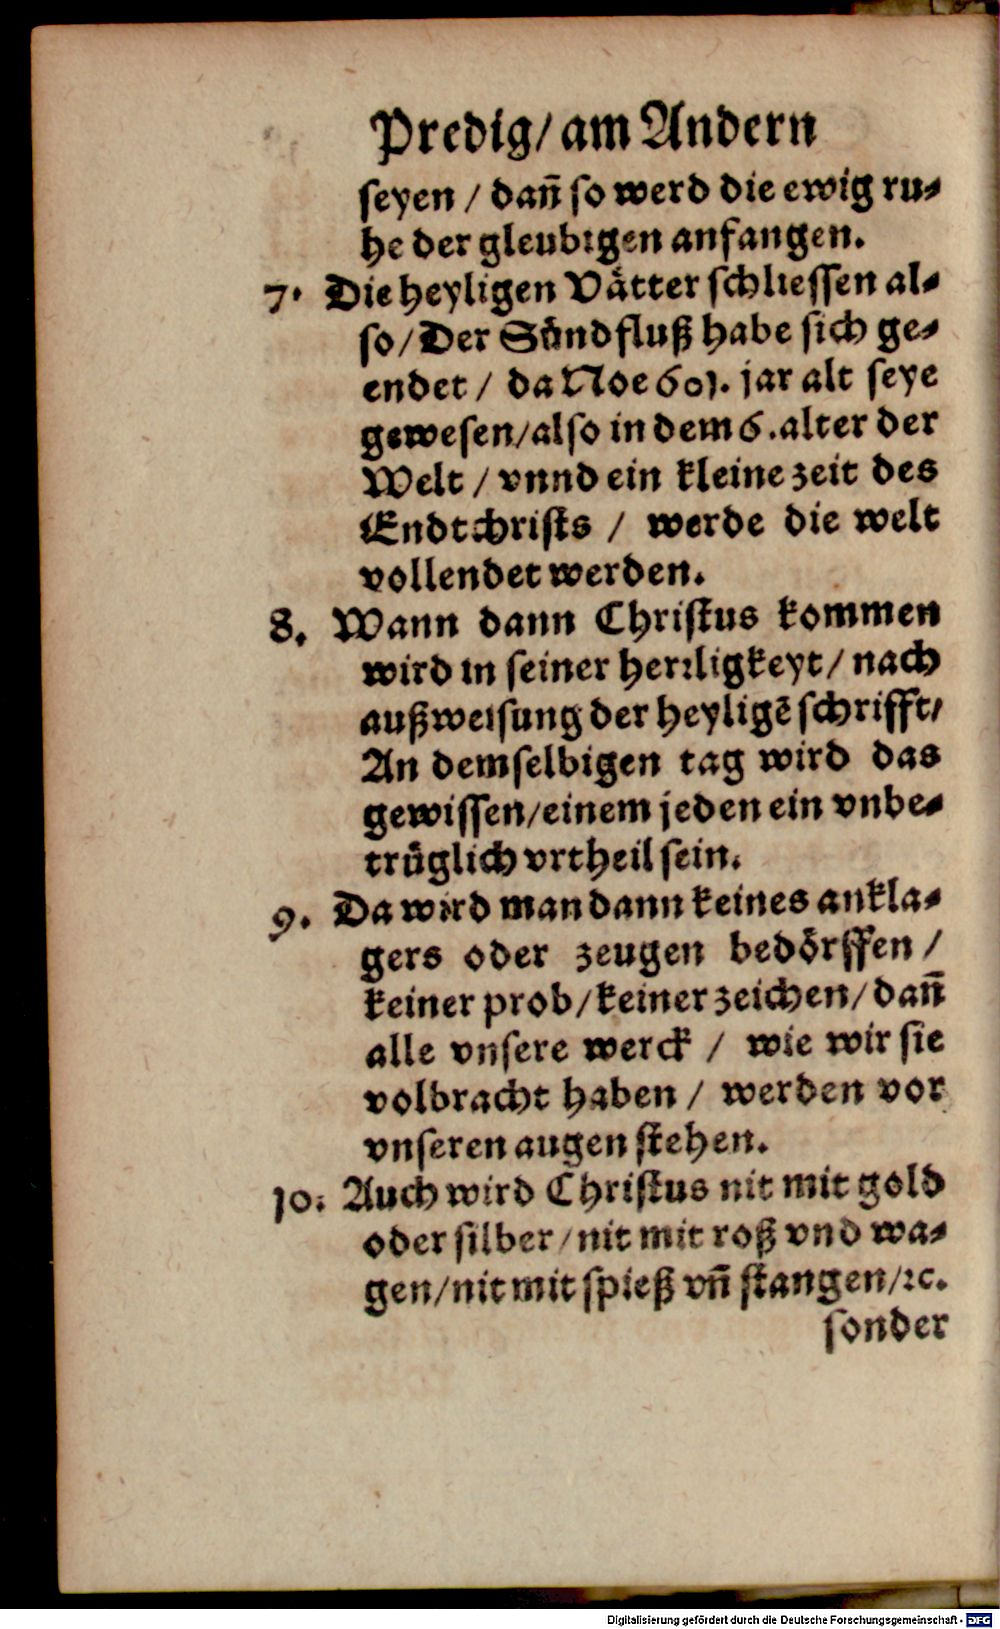 Predig/ am Andern
seyen / dañ so werd die ewig ru-
he der gleubigen anfangen.
7. Die heyligen Vätter schliessen al-
so/ Der Sündfluß habe sich ge-
endet / da Noe 601. jar alt seye
gewesen/also in dem 6.alter der
Welt / vnnd ein kleine zeit des
Endtchrists / werde die welt
vollendet werden.
8. Wann dann Christus kommen
wird in seiner herrligkeyt/ nach
außweisung der heyligẽ schrifft/
An demselbigen tag wird das
gewissen/einem jeden ein vnbe-
trüglich vrtheil sein.
9. Da wird man dann keines ankla-
gers oder zeugen bedörffen /
keiner prob/ keiner zeichen/ dañ
alle vnsere werck / wie wir sie
volbracht haben / werden vor
vnseren augen stehen.
10. Auch wird Christus nit mit gold
oder silber/nit mit roß vnd wa-
gen/nit mit spieß vñ stangen/ꝛc.
sonder
Digitalisierung gefördert durch die Deutsche Forschungsgemeinschaft - DFG